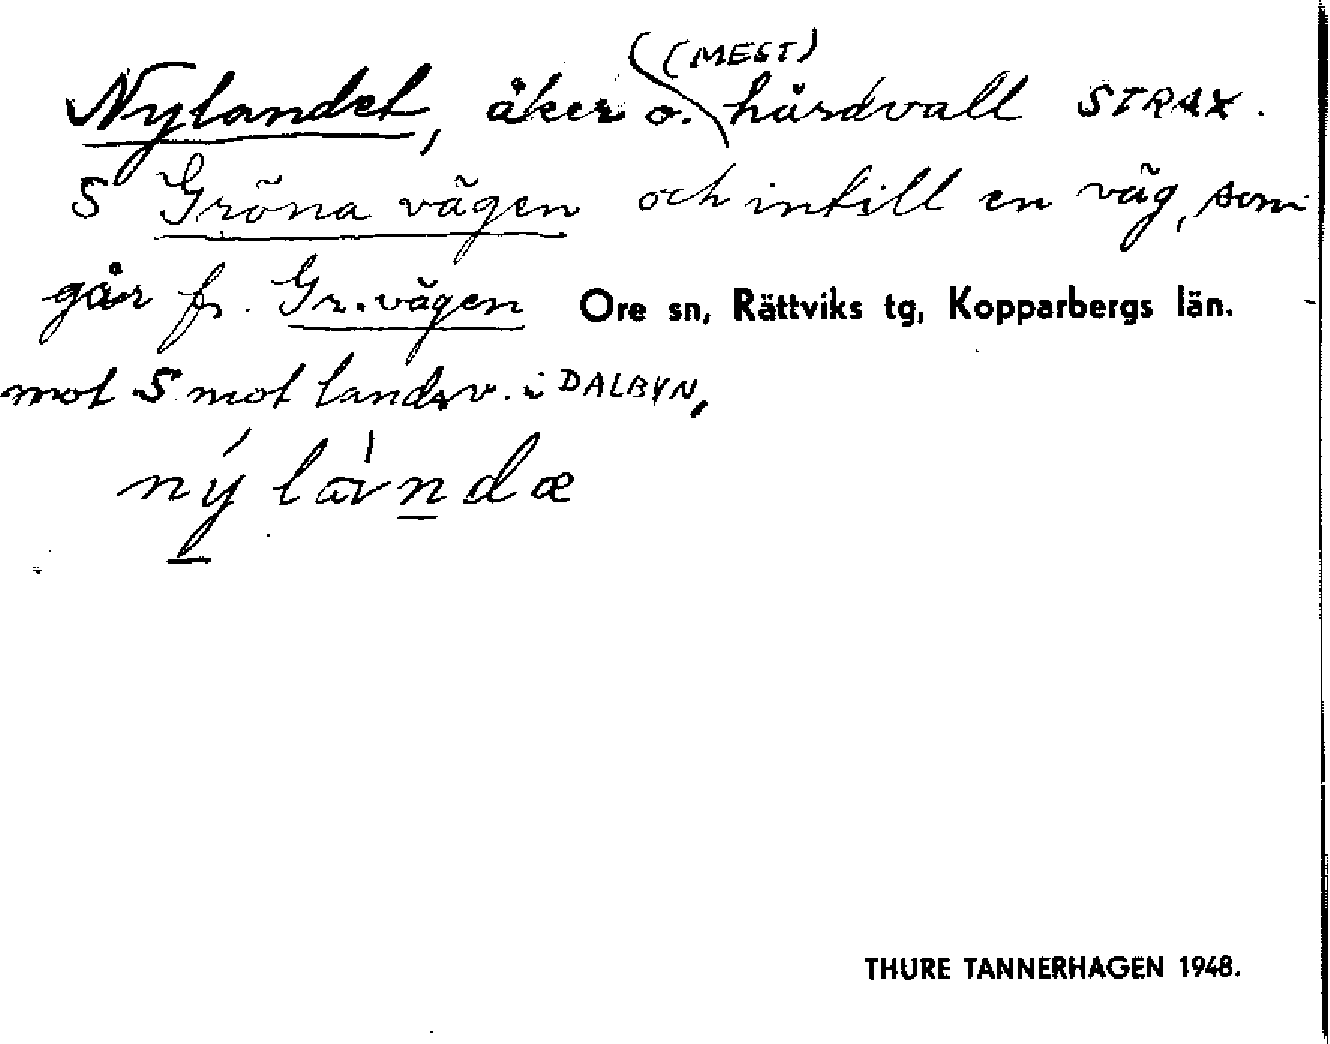 (MEST)
Nylandet, åker o. hårdvall STRAX.
S Gröna vägen och intill en väg, som
går fr. Gr. vägen Ore sn, Rättviks tg, Kopparbergs län.
mot S mot landsv. i DALBYN,
THURE TANNERHAGEN 1948.